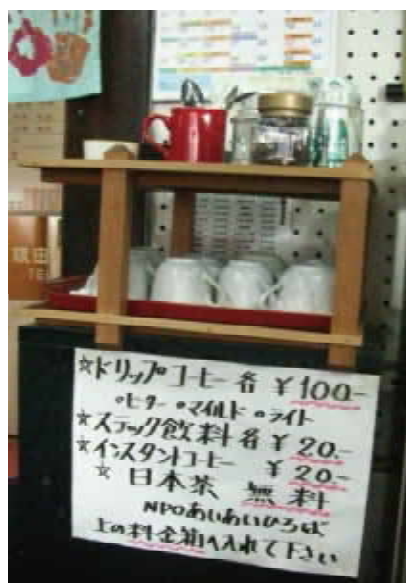 ☆ドリップコーヒー各 ¥100-
・ビター ・マイルド ・ライト
☆スティック飲料各 ¥20.-
☆インスタントコーヒー ¥20.-
☆ 日本茶 無料
NPOあいあいひろば
上の料金箱へ入れて下さい